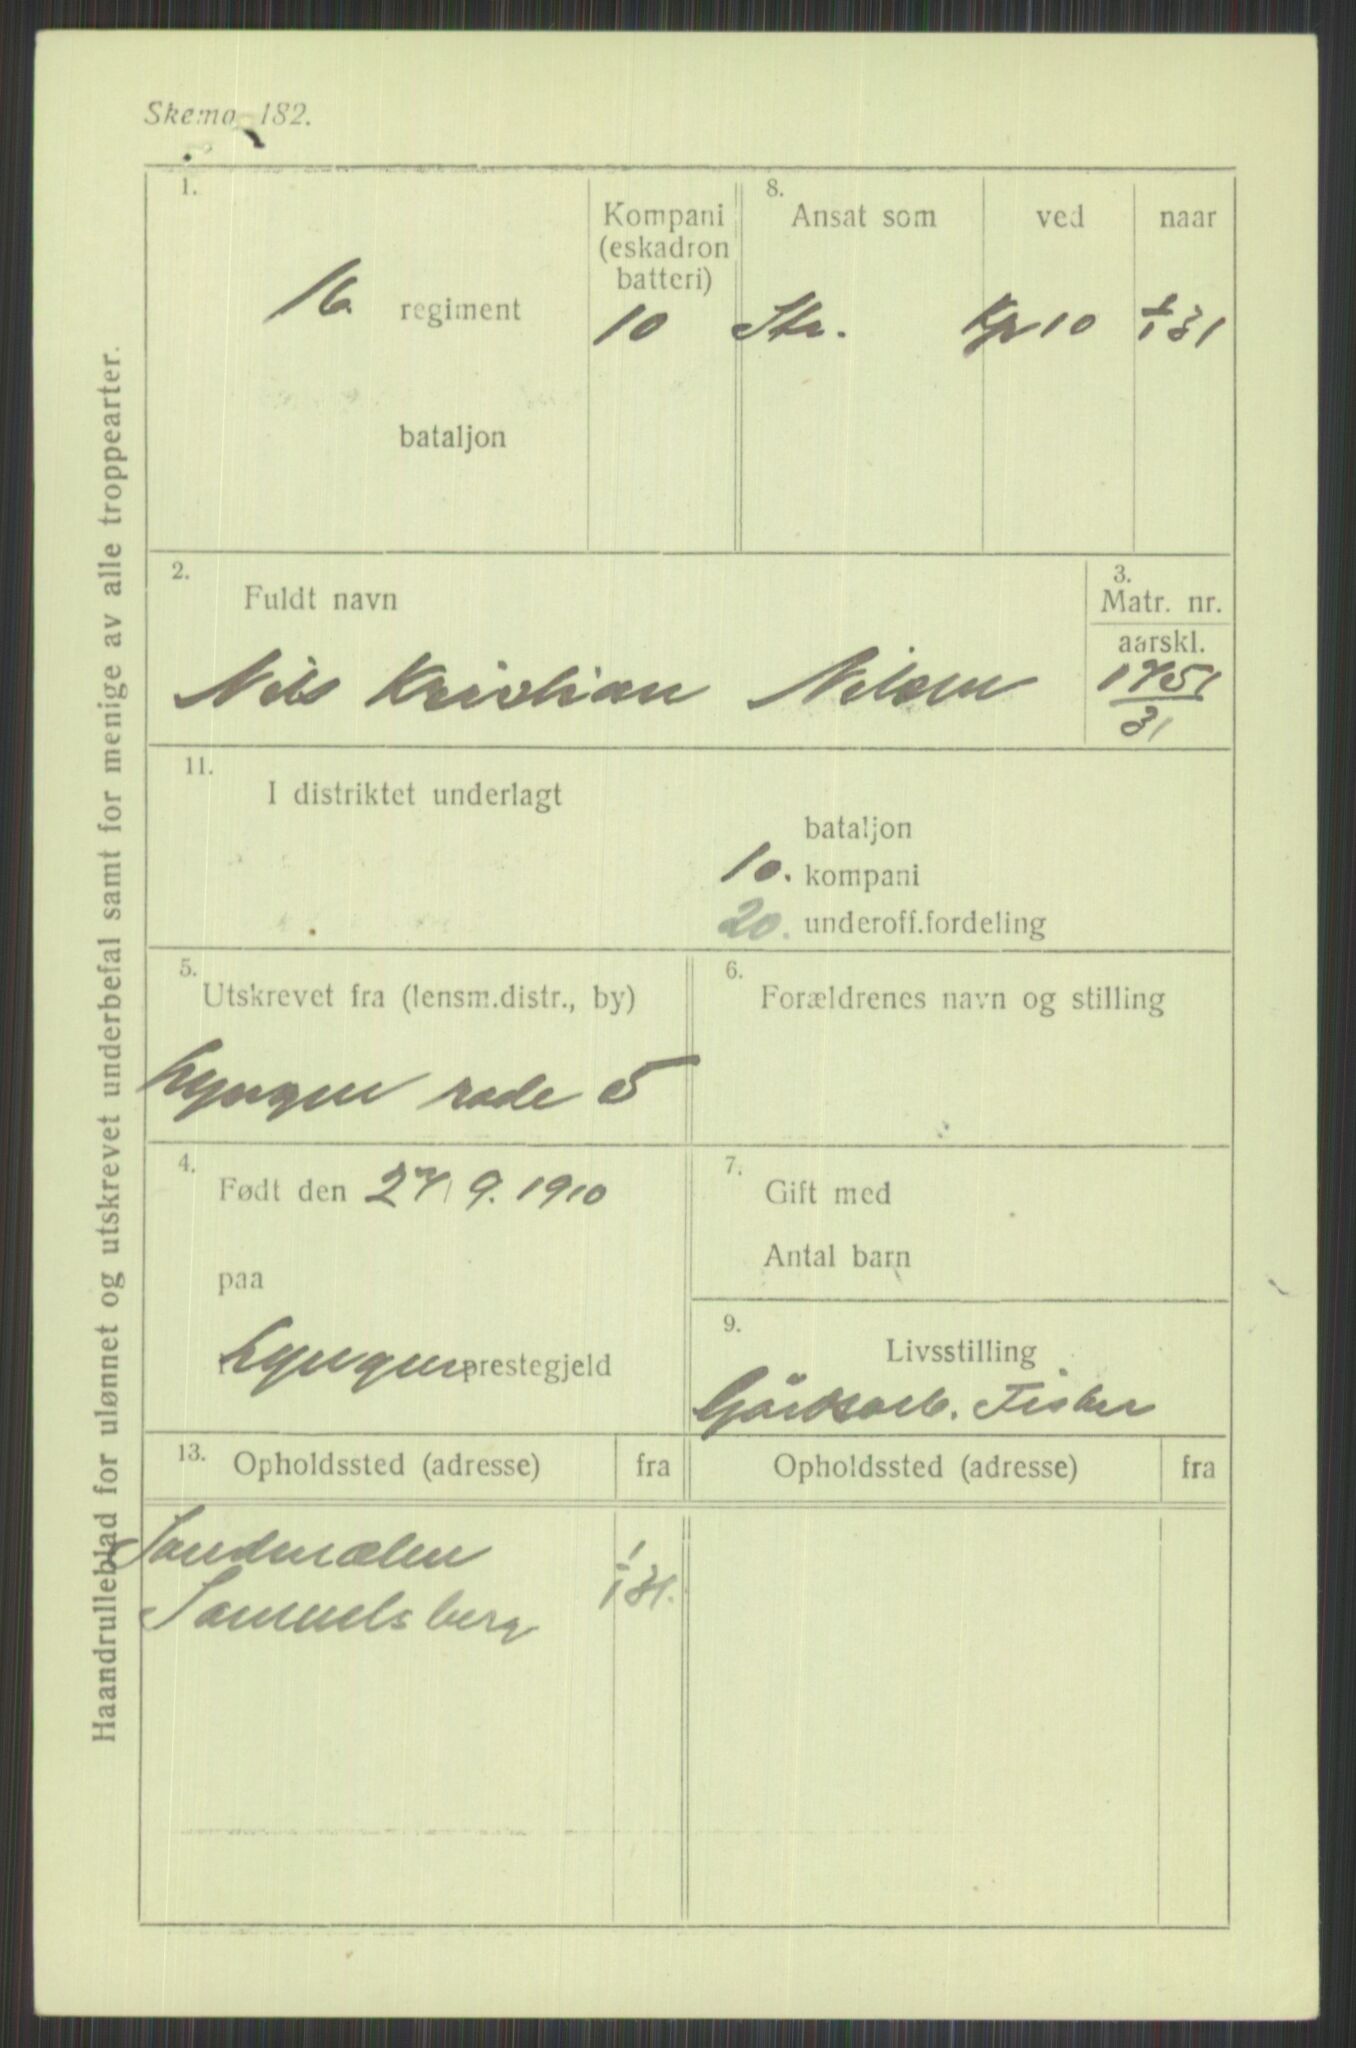 Skema 182.
Haandrulleblad for ulønnet og utskrevet underbefal samt for menige av alle troppearter.
1.
16. regiment
bataljon
Kompani
(eskadron
batteri)
10
8.
Ansat som
ved
naar
Str.
Kp 10
1/1 31
2.
Fuldt navn
Nils Kristian Nilsen
3.
Matr. nr.
aarskl.
1751
31
11.
I distriktet underlagt
bataljon
10. kompani
20. underoff.fordeling
5.
Utskrevet fra (lensm.distr., by)
Lyngen rode 5
6.
Forældrenes navn og stilling
4.
Født den 27/9. 1910
paa
Lyngen prestegjeld
7.
Gift med
Antal barn
9.
Livsstilling
Gårdsarb. Fisker
13.
Opholdssted (adresse)
fra
Opholdssted (adresse)
fra
Samuelsberg
1/1 31.